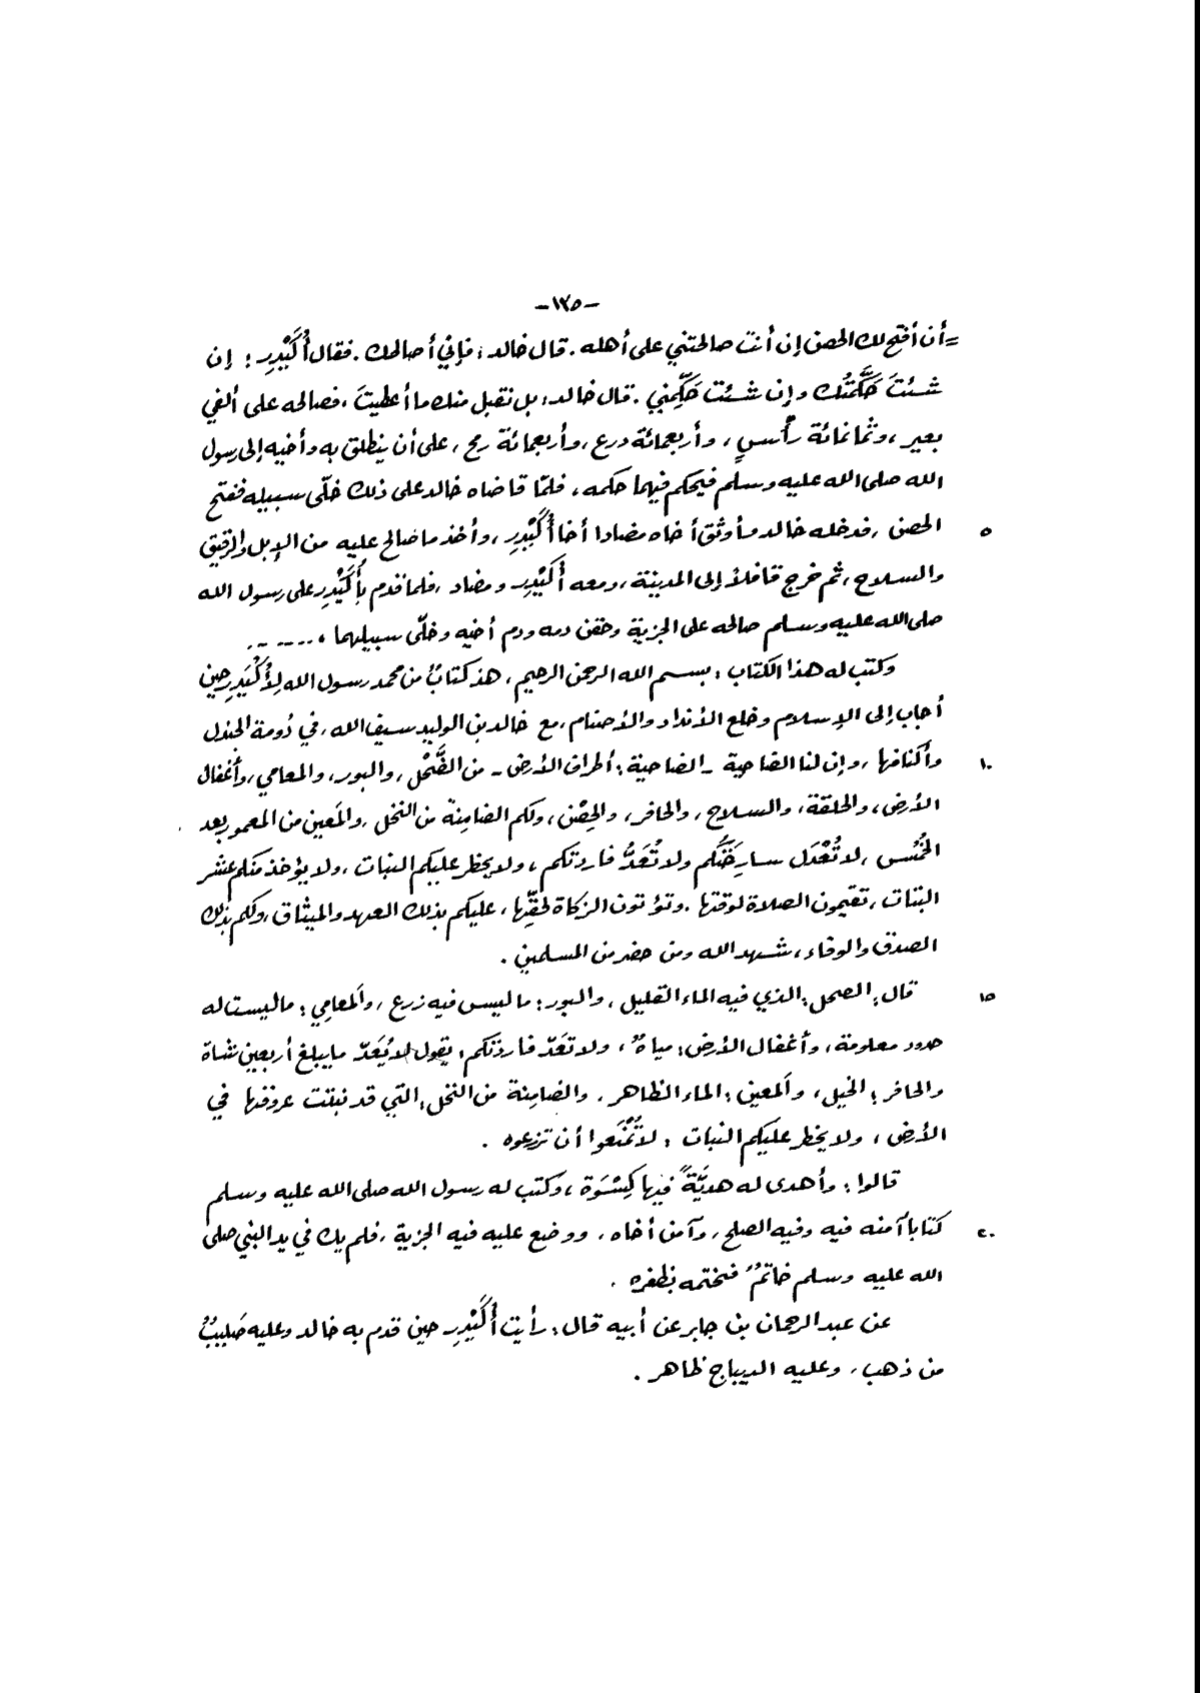 -١٣٥-
= أن أفتح لك الحصن إن أنت صالحتني على أهله. قال خالد: فإني أصالحك. فقال أُكَيْدِر: إن
شئتَ حَكَّمتُك وإن شئت حَكِّمني. قال خالد: بل نقبل منك ما أعطيتَ، فصالحه على ألفي
بعير، وثمانمائة رأسٍ، وأربعمائة درع، وأربعمائة رمح، على أن ينطلق به وأخيه إلى رسول
الله صلى الله عليه وسلم فيحكم فيهما حكمه، فلمّا قاضاه خالد على ذلك خلّى سبيله ففتح
٥ الحصن، فدخله خالد وأوثق أخاه مضادا أخا أُكَيْدِر، وأخذ ما صالح عليه من الإبل والرقيق
والسلاح، ثم خرج قافلاً إلى المدينة، ومعه أُكَيْدِر ومضاد، فلما قدم بأُكَيْدِر على رسول الله
صلى الله عليه وسلم صالحه على الجزية وحقن دمه ودم أخيه وخلّى سبيلهما، ......
وكتب له هذا الكتاب: بسم الله الرحمن الرحيم، هذ كتابٌ من محمد رسول الله لِأُكَيْدِر حين
أجاب إلى الإسلام وخلع الأنداد والأصنام، مع خالد بن الوليد سيف الله، في دُومة الجندل
١٠ وأكنافها، وإن لنا الضاحية - الضاحية: أطراف الأرض - من الضَّحْل، والبور، والمعامي، وأغْفال
الأرض، والحلقة، والسلاح، والحافر، والحِصْن، ولكم الضامِنة من النخل، والمَعين من المعمور بعد
الخُمُس، لا تُعْدَل سارِحَتُكم ولا تُعَدُّ فاردتكم، ولا يحظر عليكم النبات، ولا يؤخذ منكم عشر
البتات، تقيمون الصلاة لوقتها. وتؤتون الزكاة لحقِّها، عليكم بذلك العهد والميثاق، ولكم بذلك
الصدق والوفاء، شهد الله ومن حضر من المسلمين.
١٥ قال: الضحل: الذي فيه الماء القليل، والبور: ما ليس فيه زرع، والمَعامِي: ما ليست له
حدود معلومة، وأغفال الأرض: مياهٌ، ولا تعَدّ فاردتكم: يقول لا يُعَدّ ما يبلغ أربعين شاة
والحافر: الخيل، والمَعين: الماء الظاهر، والضامِنة من النخل: التي قد نبتت عروقها في
الأرض، ولا يحظر عليكم النبات: لا تُمْنَعوا أن تزرعوه.
قالوا: وأهدى له هديّةً فيها كِسْوَة، وكتب له رسول الله صلى الله عليه وسلم
٢٠ كتاباً آمنه فيه وفيه الصلح، وآمن أخاه، ووضع عليه فيه الجزية، فلم يك في يد النبي صلى
الله عليه وسلم خاتمٌ فختمه بظفره.
عن عبد الرحمان بن جابر عن أبيه قال: رأيت أُكَيْدِر حين قدم به خالد وعليه صَليبٌ
من ذهب، وعليه الديباج ظاهر.